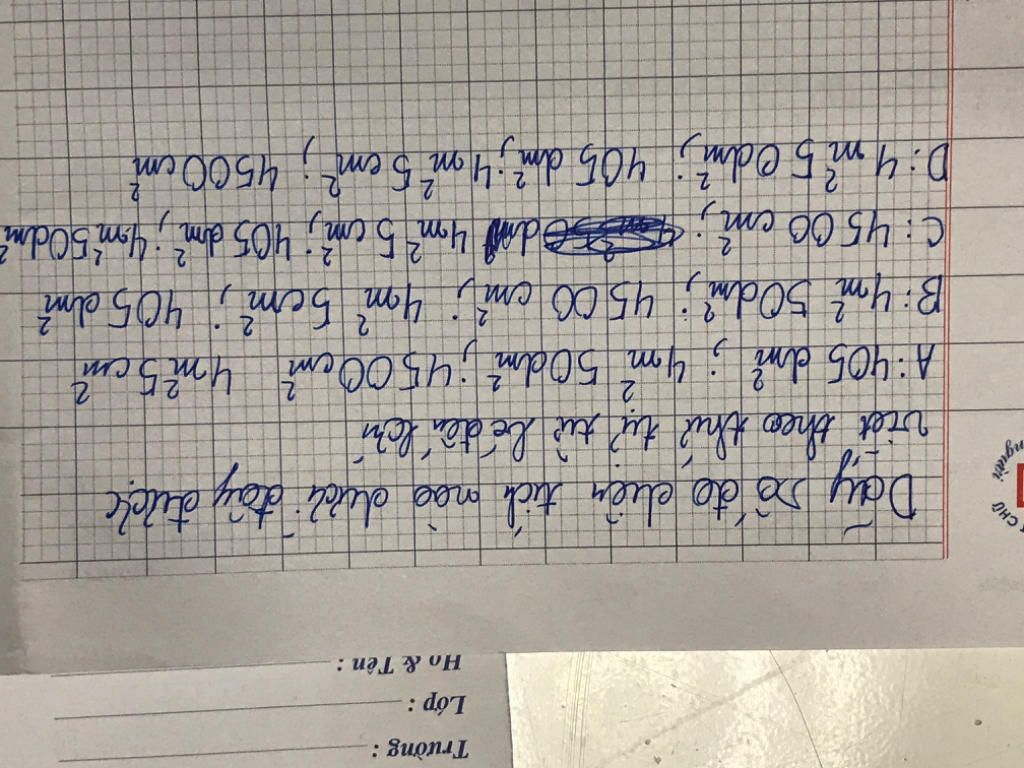 Trường :
Lớp :
Họ & Tên :
Dãy số đo diện tích nào dưới đây được
viết theo thứ tự từ bé đến lớn
A: 405 dm² ; 4m² 50dm² ; 4500cm² 4m² 5cm²
B: 4m² 50dm² ; 4500 cm² ; 4m² 5cm² ; 405 dm²
C: 4500 cm² ; 4m² 5cm² ; 405dm² ; 4m² 50dm²
D: 4m² 50dm² ; 405 dm² ; 4m² 5cm² ; 4500cm²